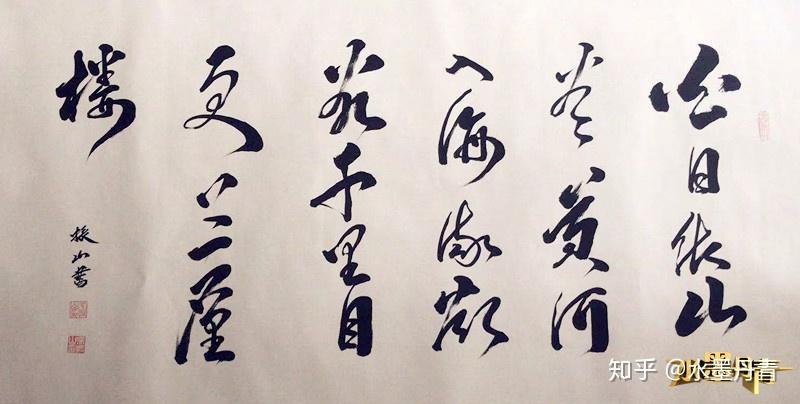 白日依山
尽黄河
入海流欲
穷千里目
更上一层
楼
山書
知乎 @水墨丹青